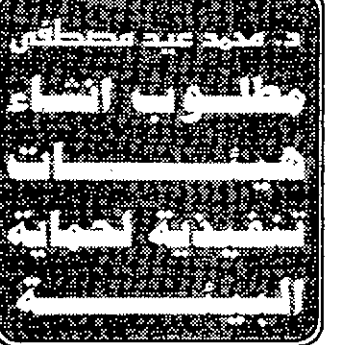 د. محمد عيد مصطفى
مطلوب انشاء
هيئات
تنفيذية لحماية
البيئة